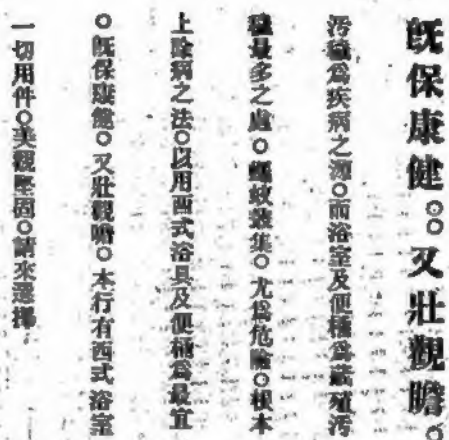 既保康健。又壯觀瞻。
汚穢爲疾病之源。而浴室及便桶爲藏殖汚
穢最多之處。蠅蚊叢集。尤爲危險。根本
上除病之法。以用西式浴具及便桶爲最宜
。既保康健。又壯觀瞻。本行有西式浴室
一切用件。美觀堅固。請來選擇